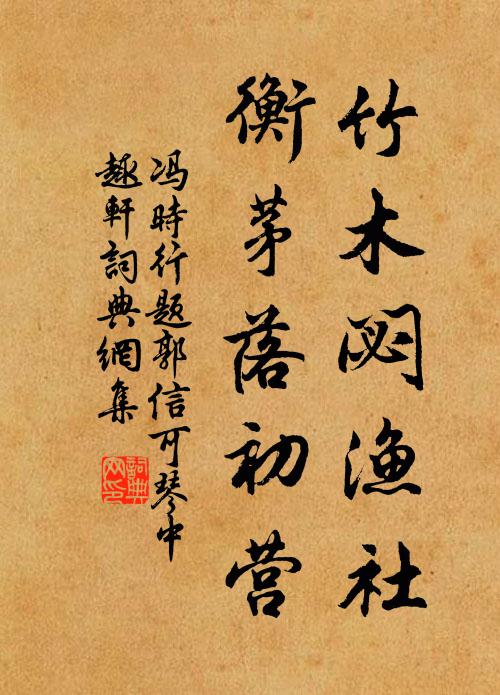 竹木閟渔社
衡茅落初营
冯時行题郭信可琴中
趣軒詞典網集
詞典
网印